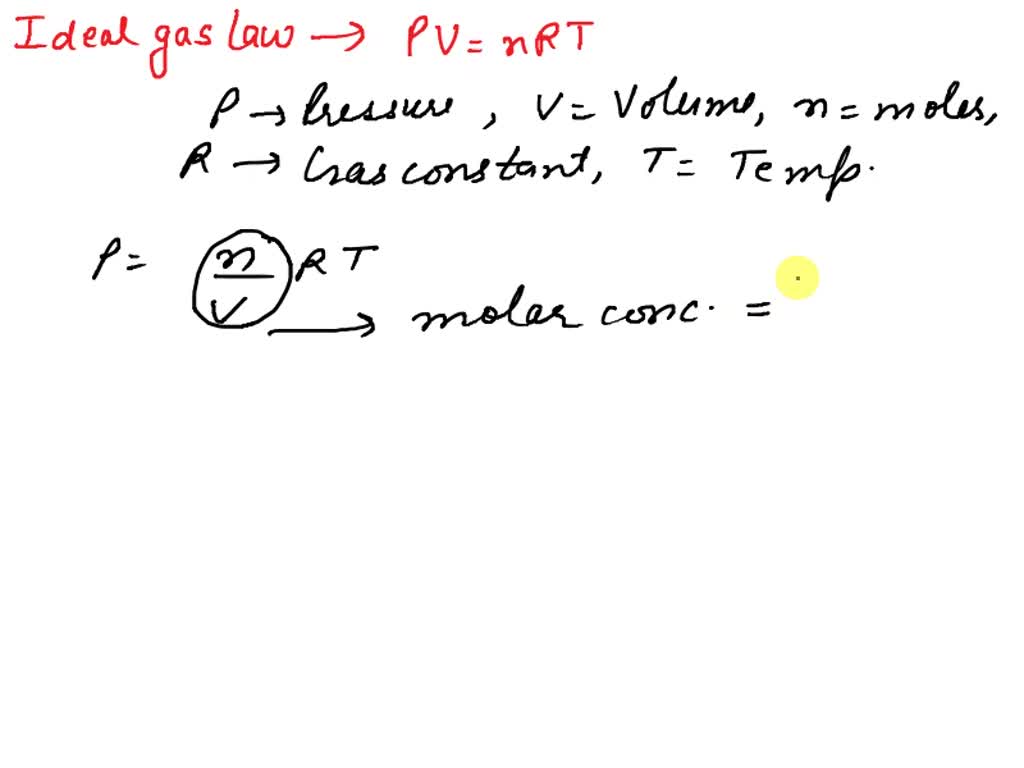 Ideal gas law → PV = nRT
P → Pressure, V = Volume, n = moles,
R → Gas constant, T = Temp.
P = n/V RT
→ molar conc. =